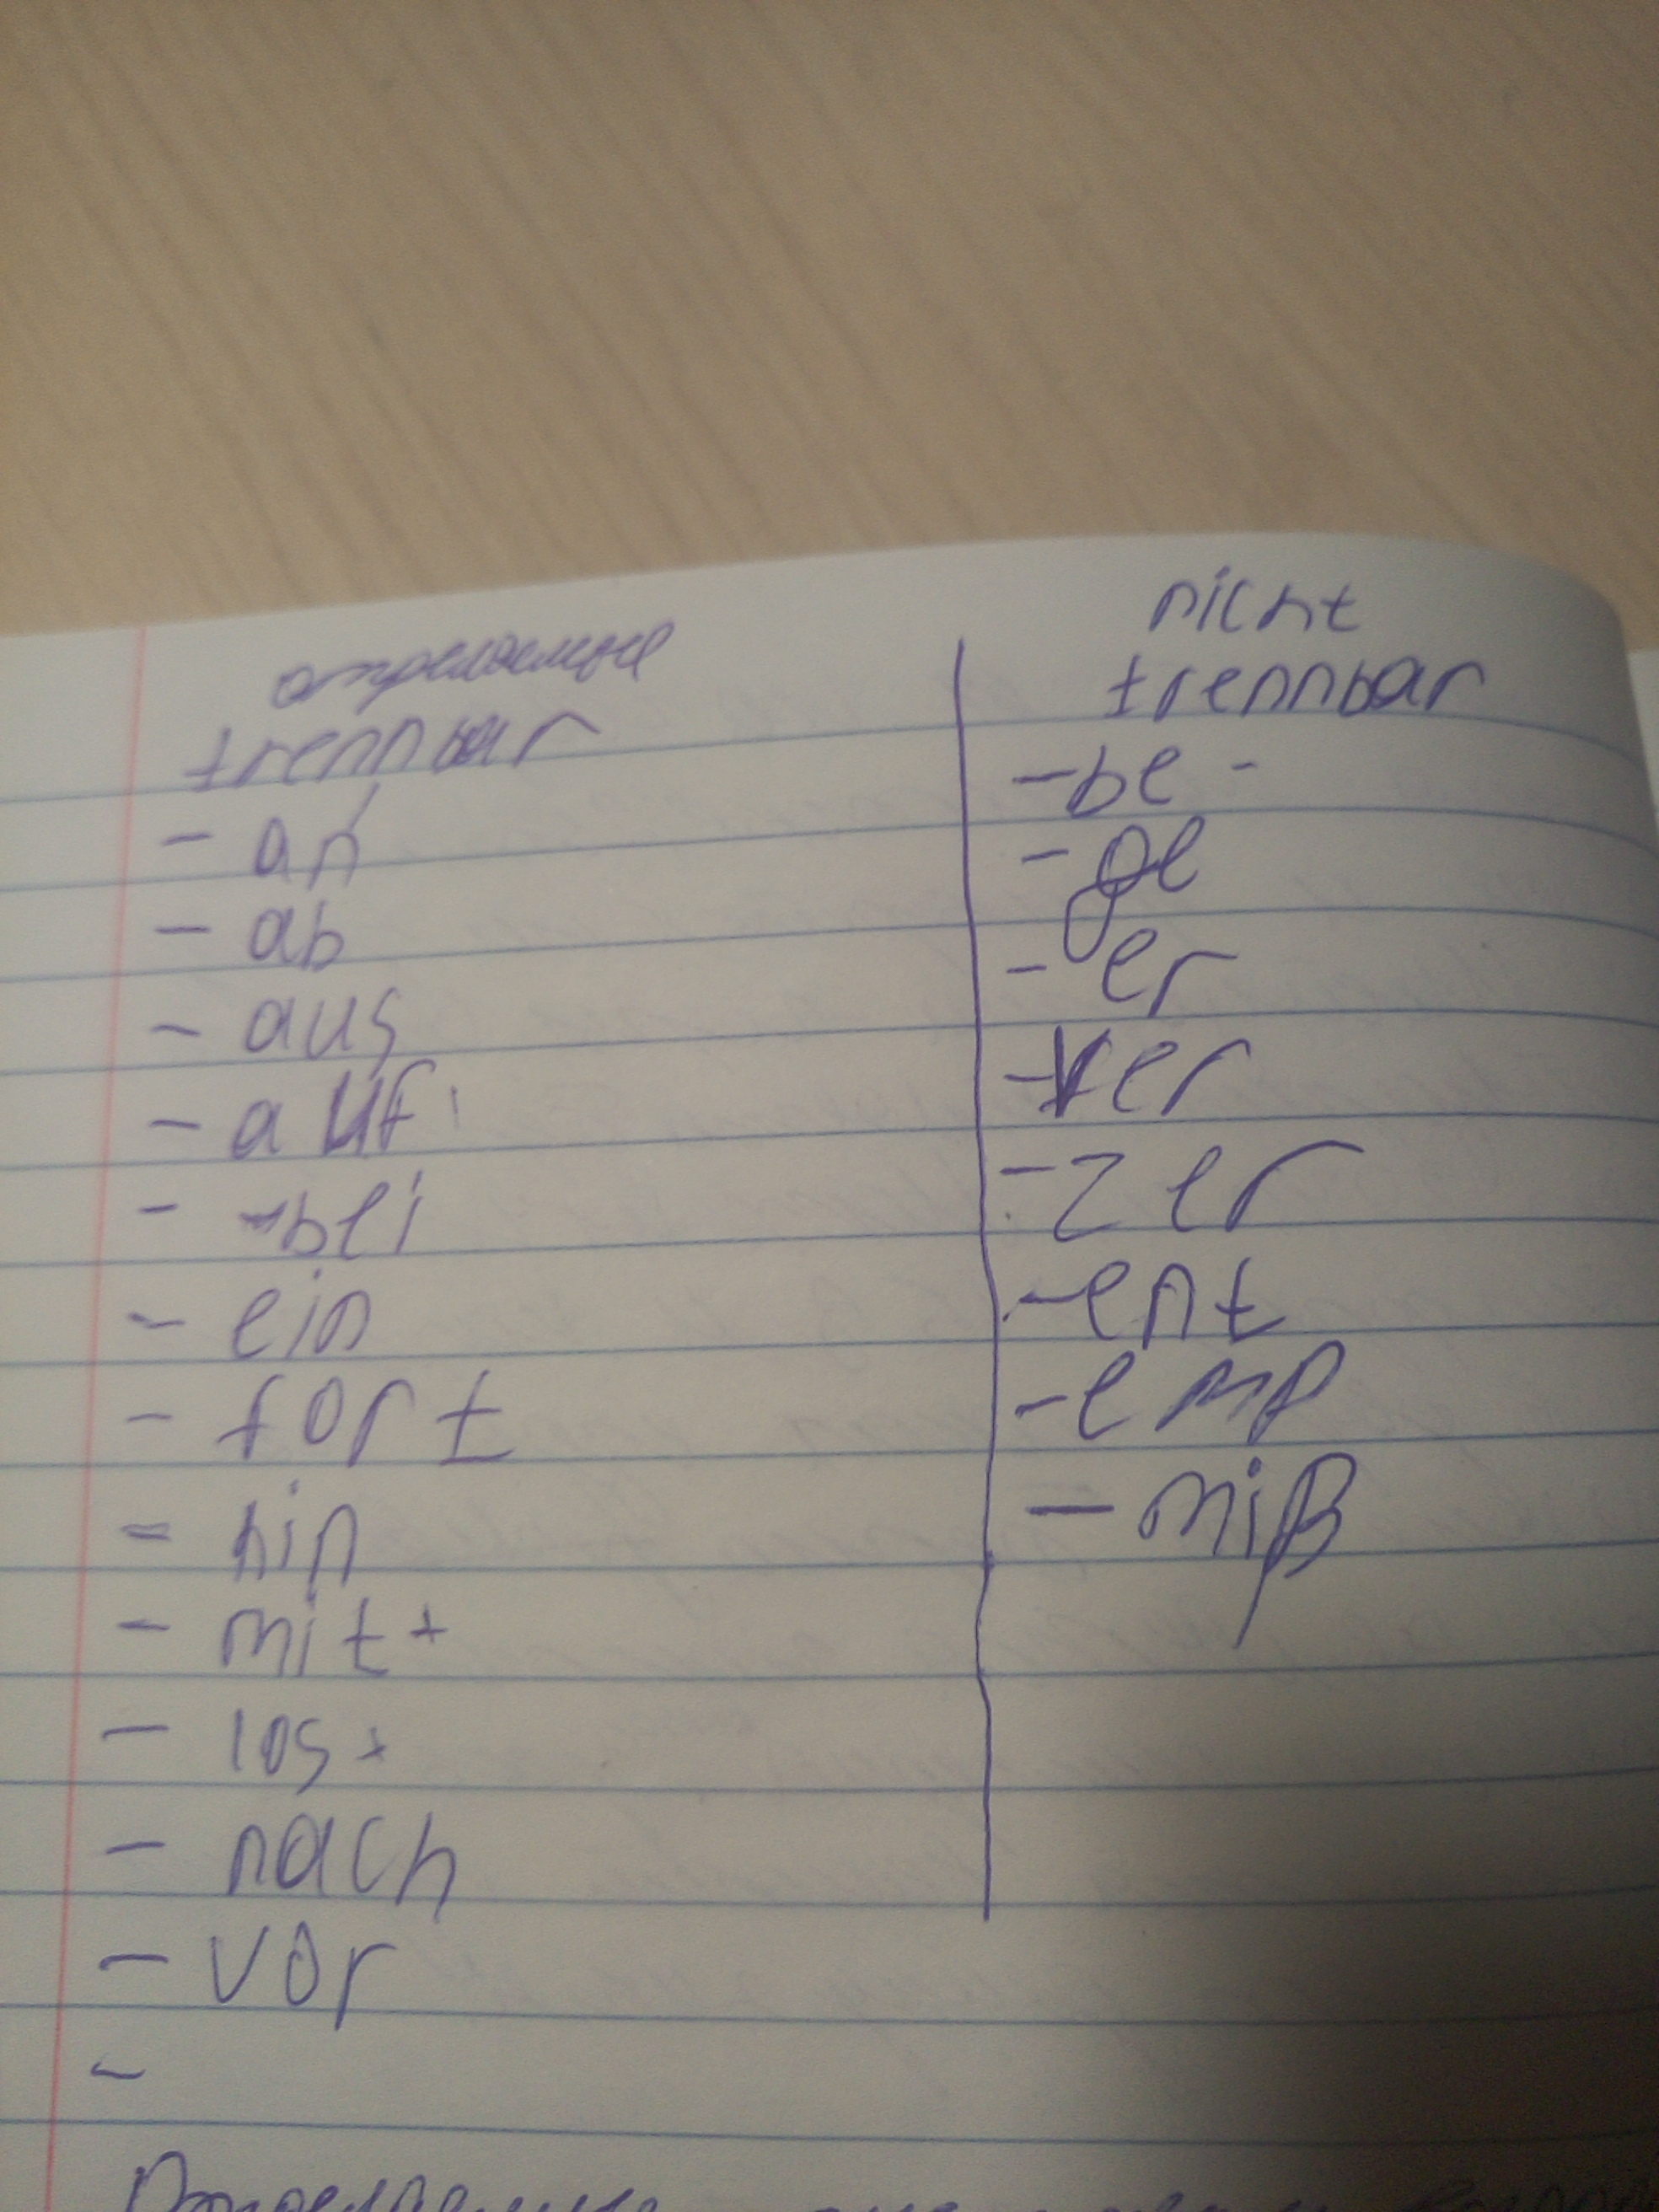 отделяемые
trennbar
- an
- ab
- aus
- auf
- bei
- ein
- fort
- hin
- mit +
- los +
- nach
- vor
-
nicht
trennbar
- be -
- ge
- er
- ver
- zer
- ent
- emp
- miß